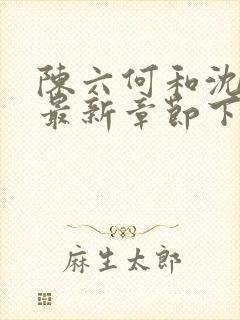 陈六何和沈
最新章节下
麻生太郎